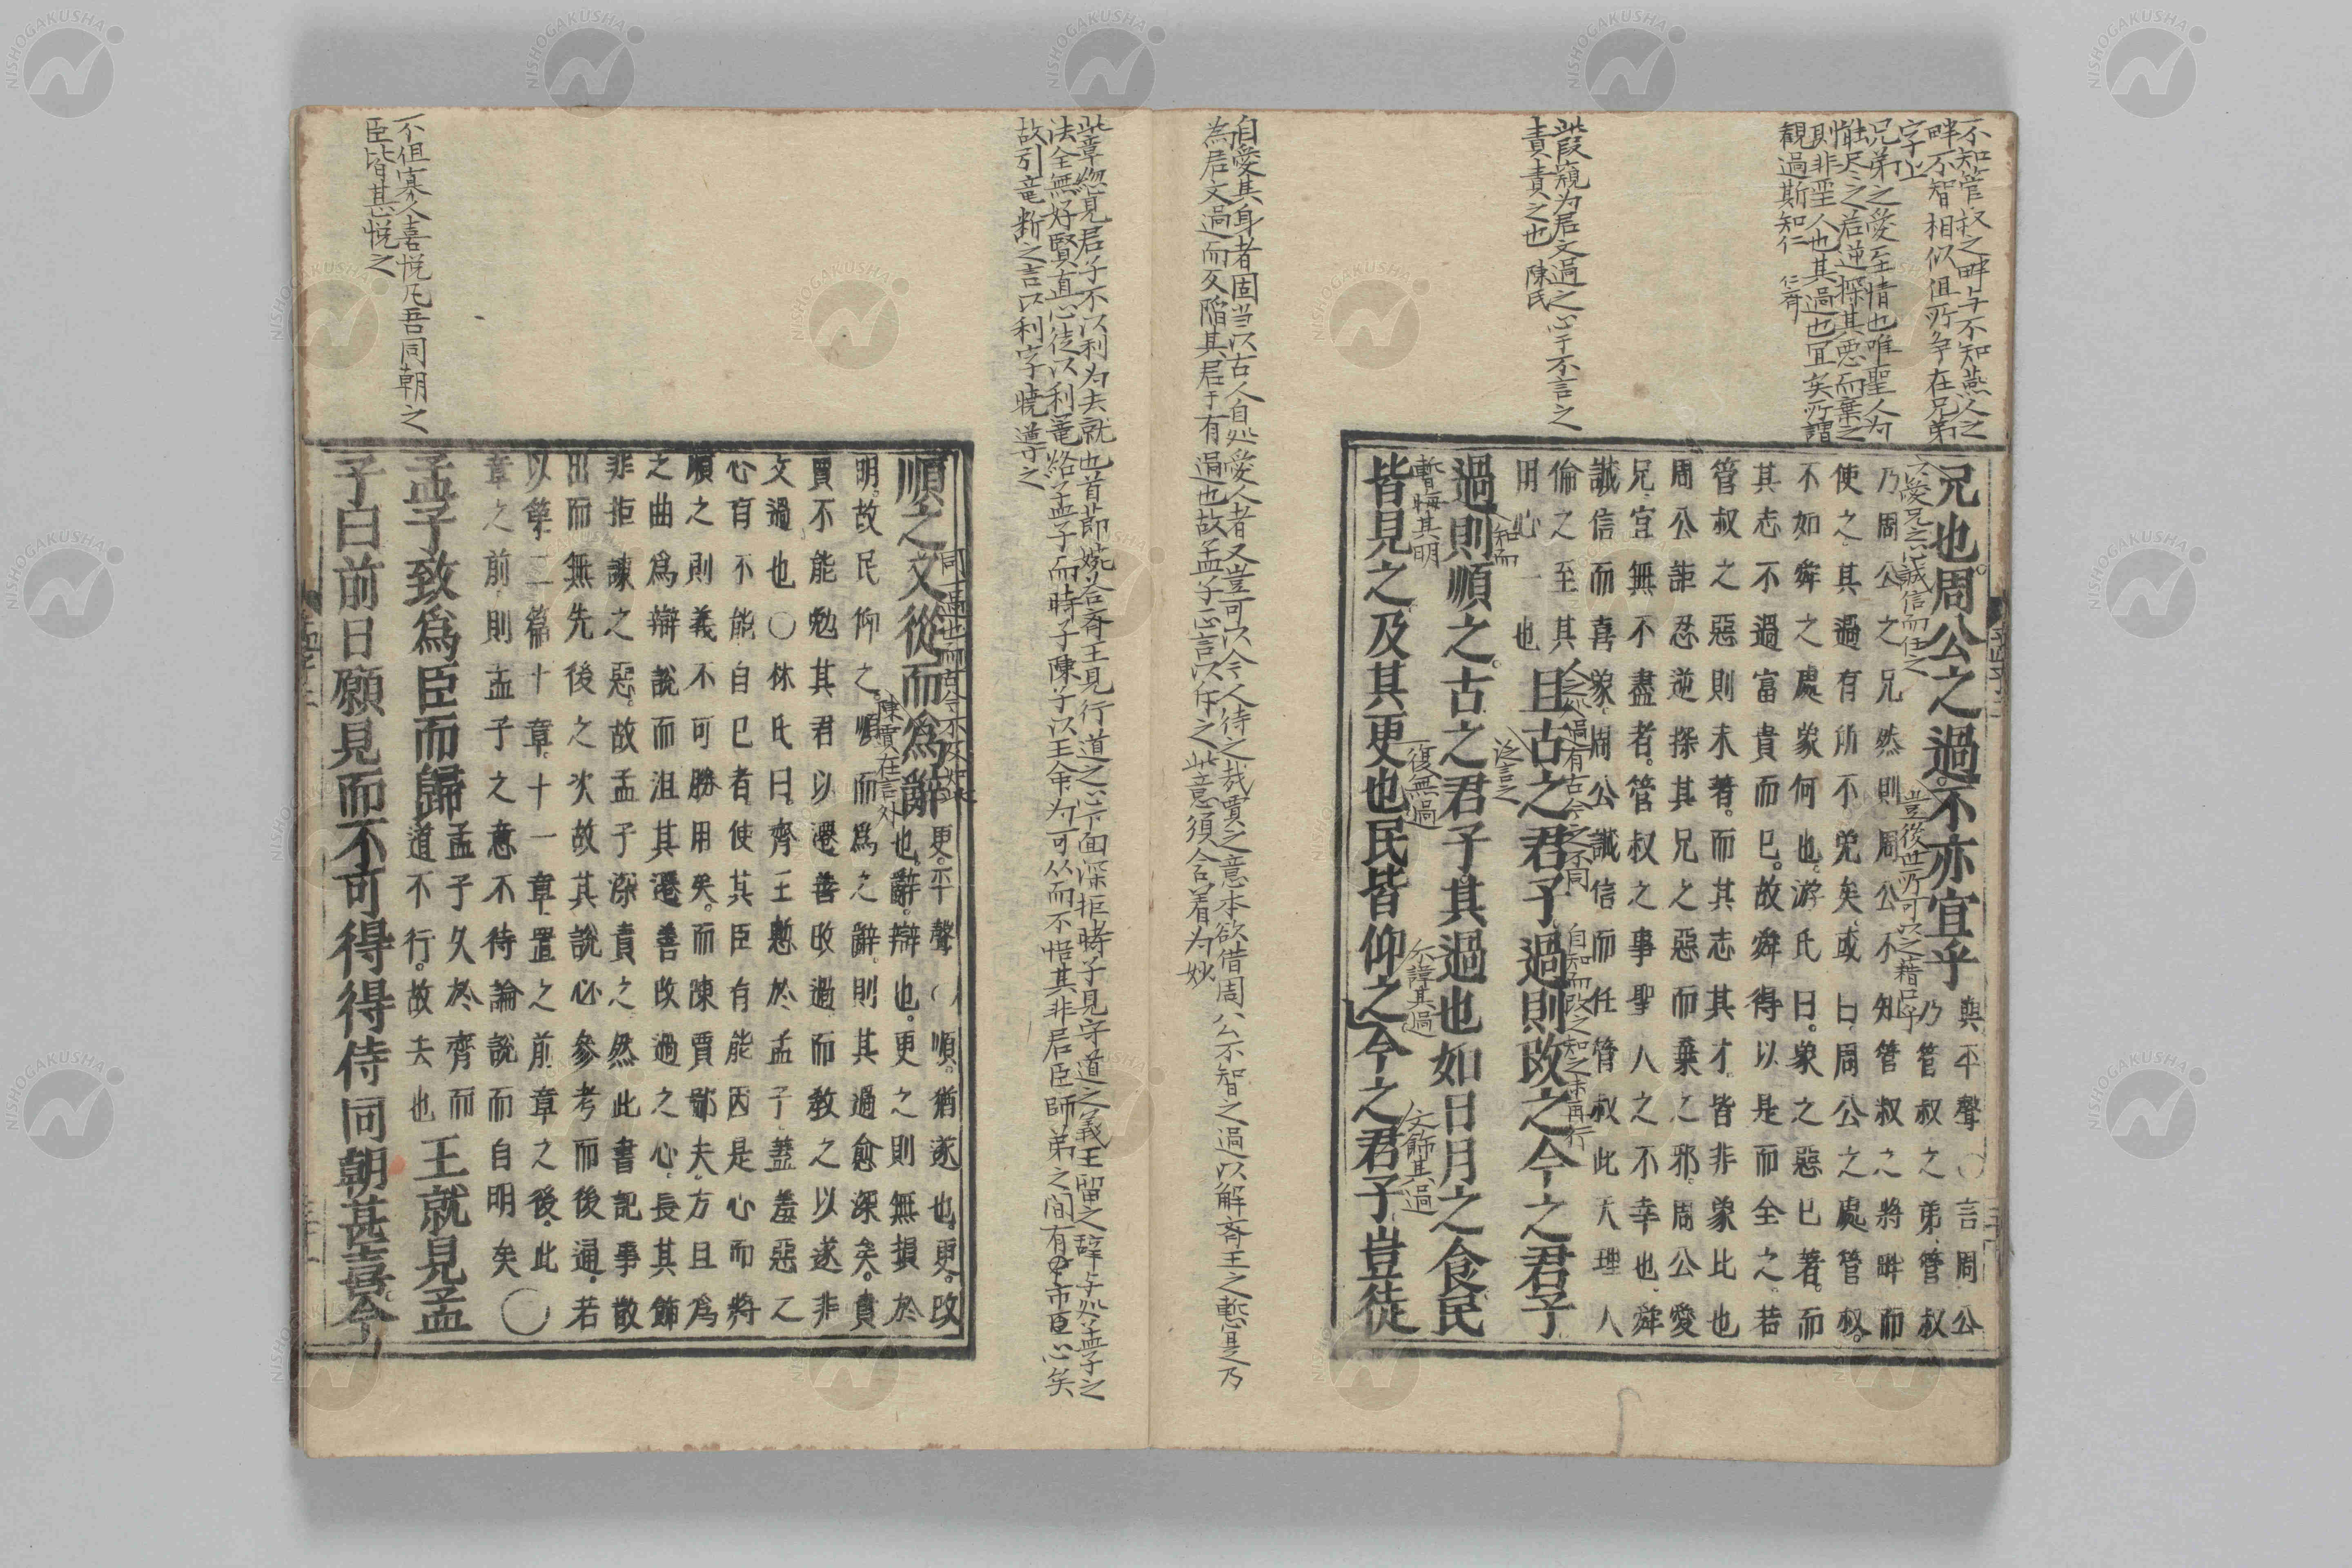 不知管叔之畔与不知燕人之
畔不智相似但所争在兄弟
字上
兄弟之愛至情也唯聖人為
惟尽之若逆探其悪而棄之
則非聖人也其過也宜矣所謂
観過斯知仁 仁斉
此段窺为君文過之心于不言之
責責之也 陳氏
兄也周公之過不亦宜乎
與平聲○言周公
乃管叔之弟管叔
乃周公之兄然則周公不知管叔之將畔而
使之其過有所不免矣或曰周公之處管叔
不如舜之處象何也游氏曰象之惡已著而
其志不過富貴而已故舜得以是而全之若
管叔之惡則未著而其志其才皆非象比也
周公詎忍逆探其兄之惡而棄之邪周公愛
兄宜無不盡者管叔之事聖人之不幸也舜
誠信而喜象周公誠信而任管叔此天理人
倫之至其
用心一也
且古之君子過則改之今之君子
過則順之古之君子其過也如日月之食民
皆見之及其更也民皆仰之今之君子豈徒
以愛兄之心誠信而任之
豈後世所可以之藉口乎
人之処過有古今之不同
自知而改之知之未再行
知而
泛言之
暫晦其明
復無過
不諱其過
文飾其過
自愛其身者固当以古人自処愛人者又豈可以今人待之哉賈之意本欲借周公不智之過以解斉王之慙是乃
為君文過而反陥其君于有過也故孟子正言以斥之此意須合着为妙
此章総見君子不以利为去就也首節焼合斉王見行道之心下面深拒時子見守道之義王留之辞与処孟子之
法全無好賢直心徒以利竜絡孟子而時子陳子以王命为可从而不悟其非君臣師弟之間有市臣心矣
故引竜断之言以利字暁導之
順之又從而為辭
更平聲○順猶遂也更改
也辭辯也更之則無損於
明故民仰之順而為之辭則其過愈深矣責
賈不能勉其君以遷善改過而教之以遂非
文過也○林氏曰齊王慙於孟子蓋羞惡之
心有不能自已者使其臣有能因是心而將
順之則義不可勝用矣而陳賈鄙夫方且為
之曲為辯說而沮其遷善改過之心長其飾
非拒諫之惡故孟子深責之然此書記事散
出而無先後之次故其說必參考而後通若
以第二篇十章十一章置之前章之後此
章之前則孟子之意不待論說而自明矣○
同一過也而古今不及如此
陳賈在言外
孟子致為臣而歸
孟子久於齊而
道不行故去也
王就見孟
子曰前日願見而不可得得侍同朝甚喜今
不但寡人喜悦凡吾同朝之
臣皆甚悦之
NISHOGAKUSHA